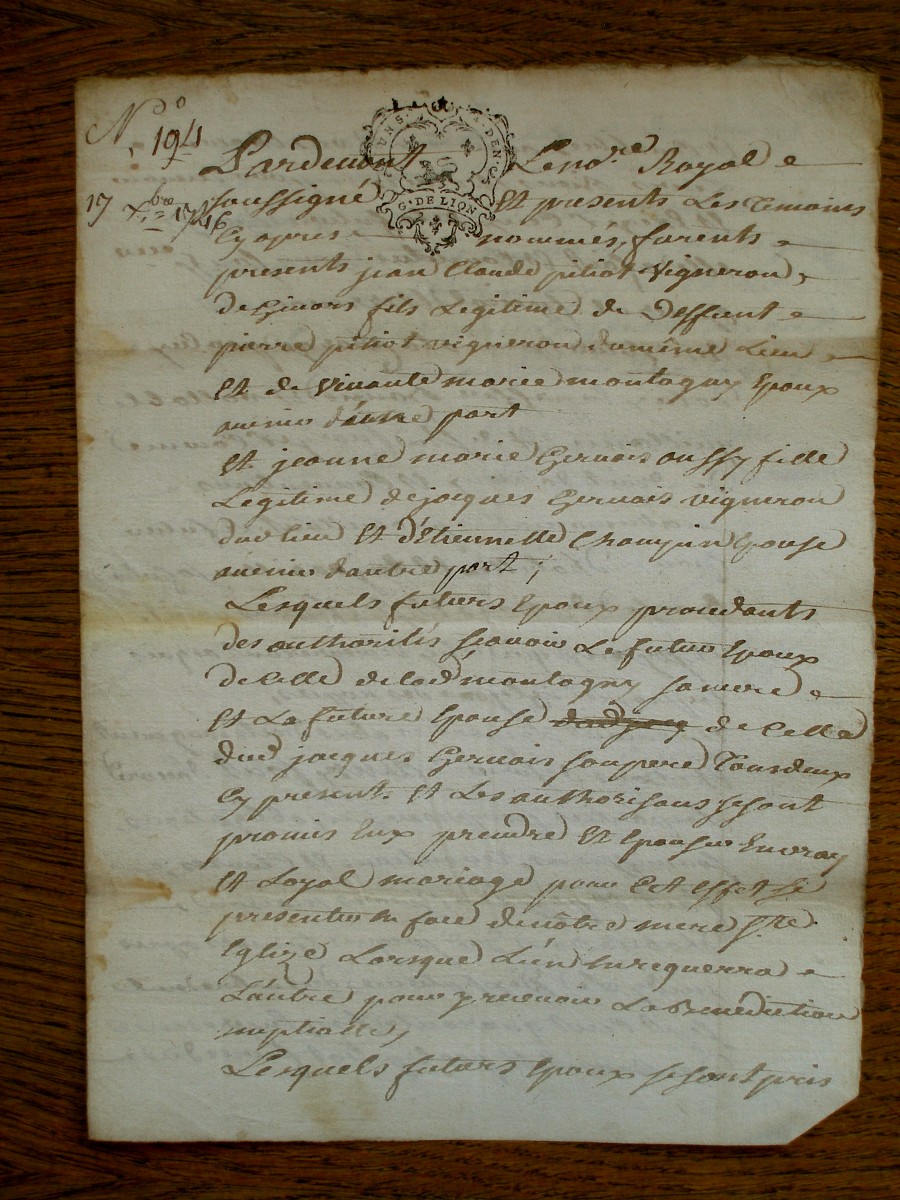 N.° 194
17 xbre 1746
UN S. DEN. C.
G. DE LION
Pardevant Le no.re Royal
soussigné Et presents Les Temoins
Cy apres nommés, furents
presents jean Claude pitiot vigneron
de Givors fils Legitime de deffunt
pierre pitiot vigneron du même Lieu
Et de vivante marie montagny Epoux
avenir d'une part
Et jeanne marie Gervais aussy fille
Legitime de jacques Gervais vigneron
dud lieu Et d'Etiennette Epouse
avenir d'autre part;
Lesquels futurs Epoux procedants
des authorités scavoir Le futur Epoux
de Celle de lad montagny sa mere
Et La future Epouse de Celle
dud jacques Gervais son pere Tous deux
Cy present Et Les authorisans se sont
promis Eux prendre Et Epouser En vray
Et Loyal mariage pour Cet effet se
presenter En face de nôtre mere S.te
Eglize Lorsque L'un En requerra
L'autre pour y recevoir La Benediction
nuptialle,
Lesquels futurs Epoux se sont pris